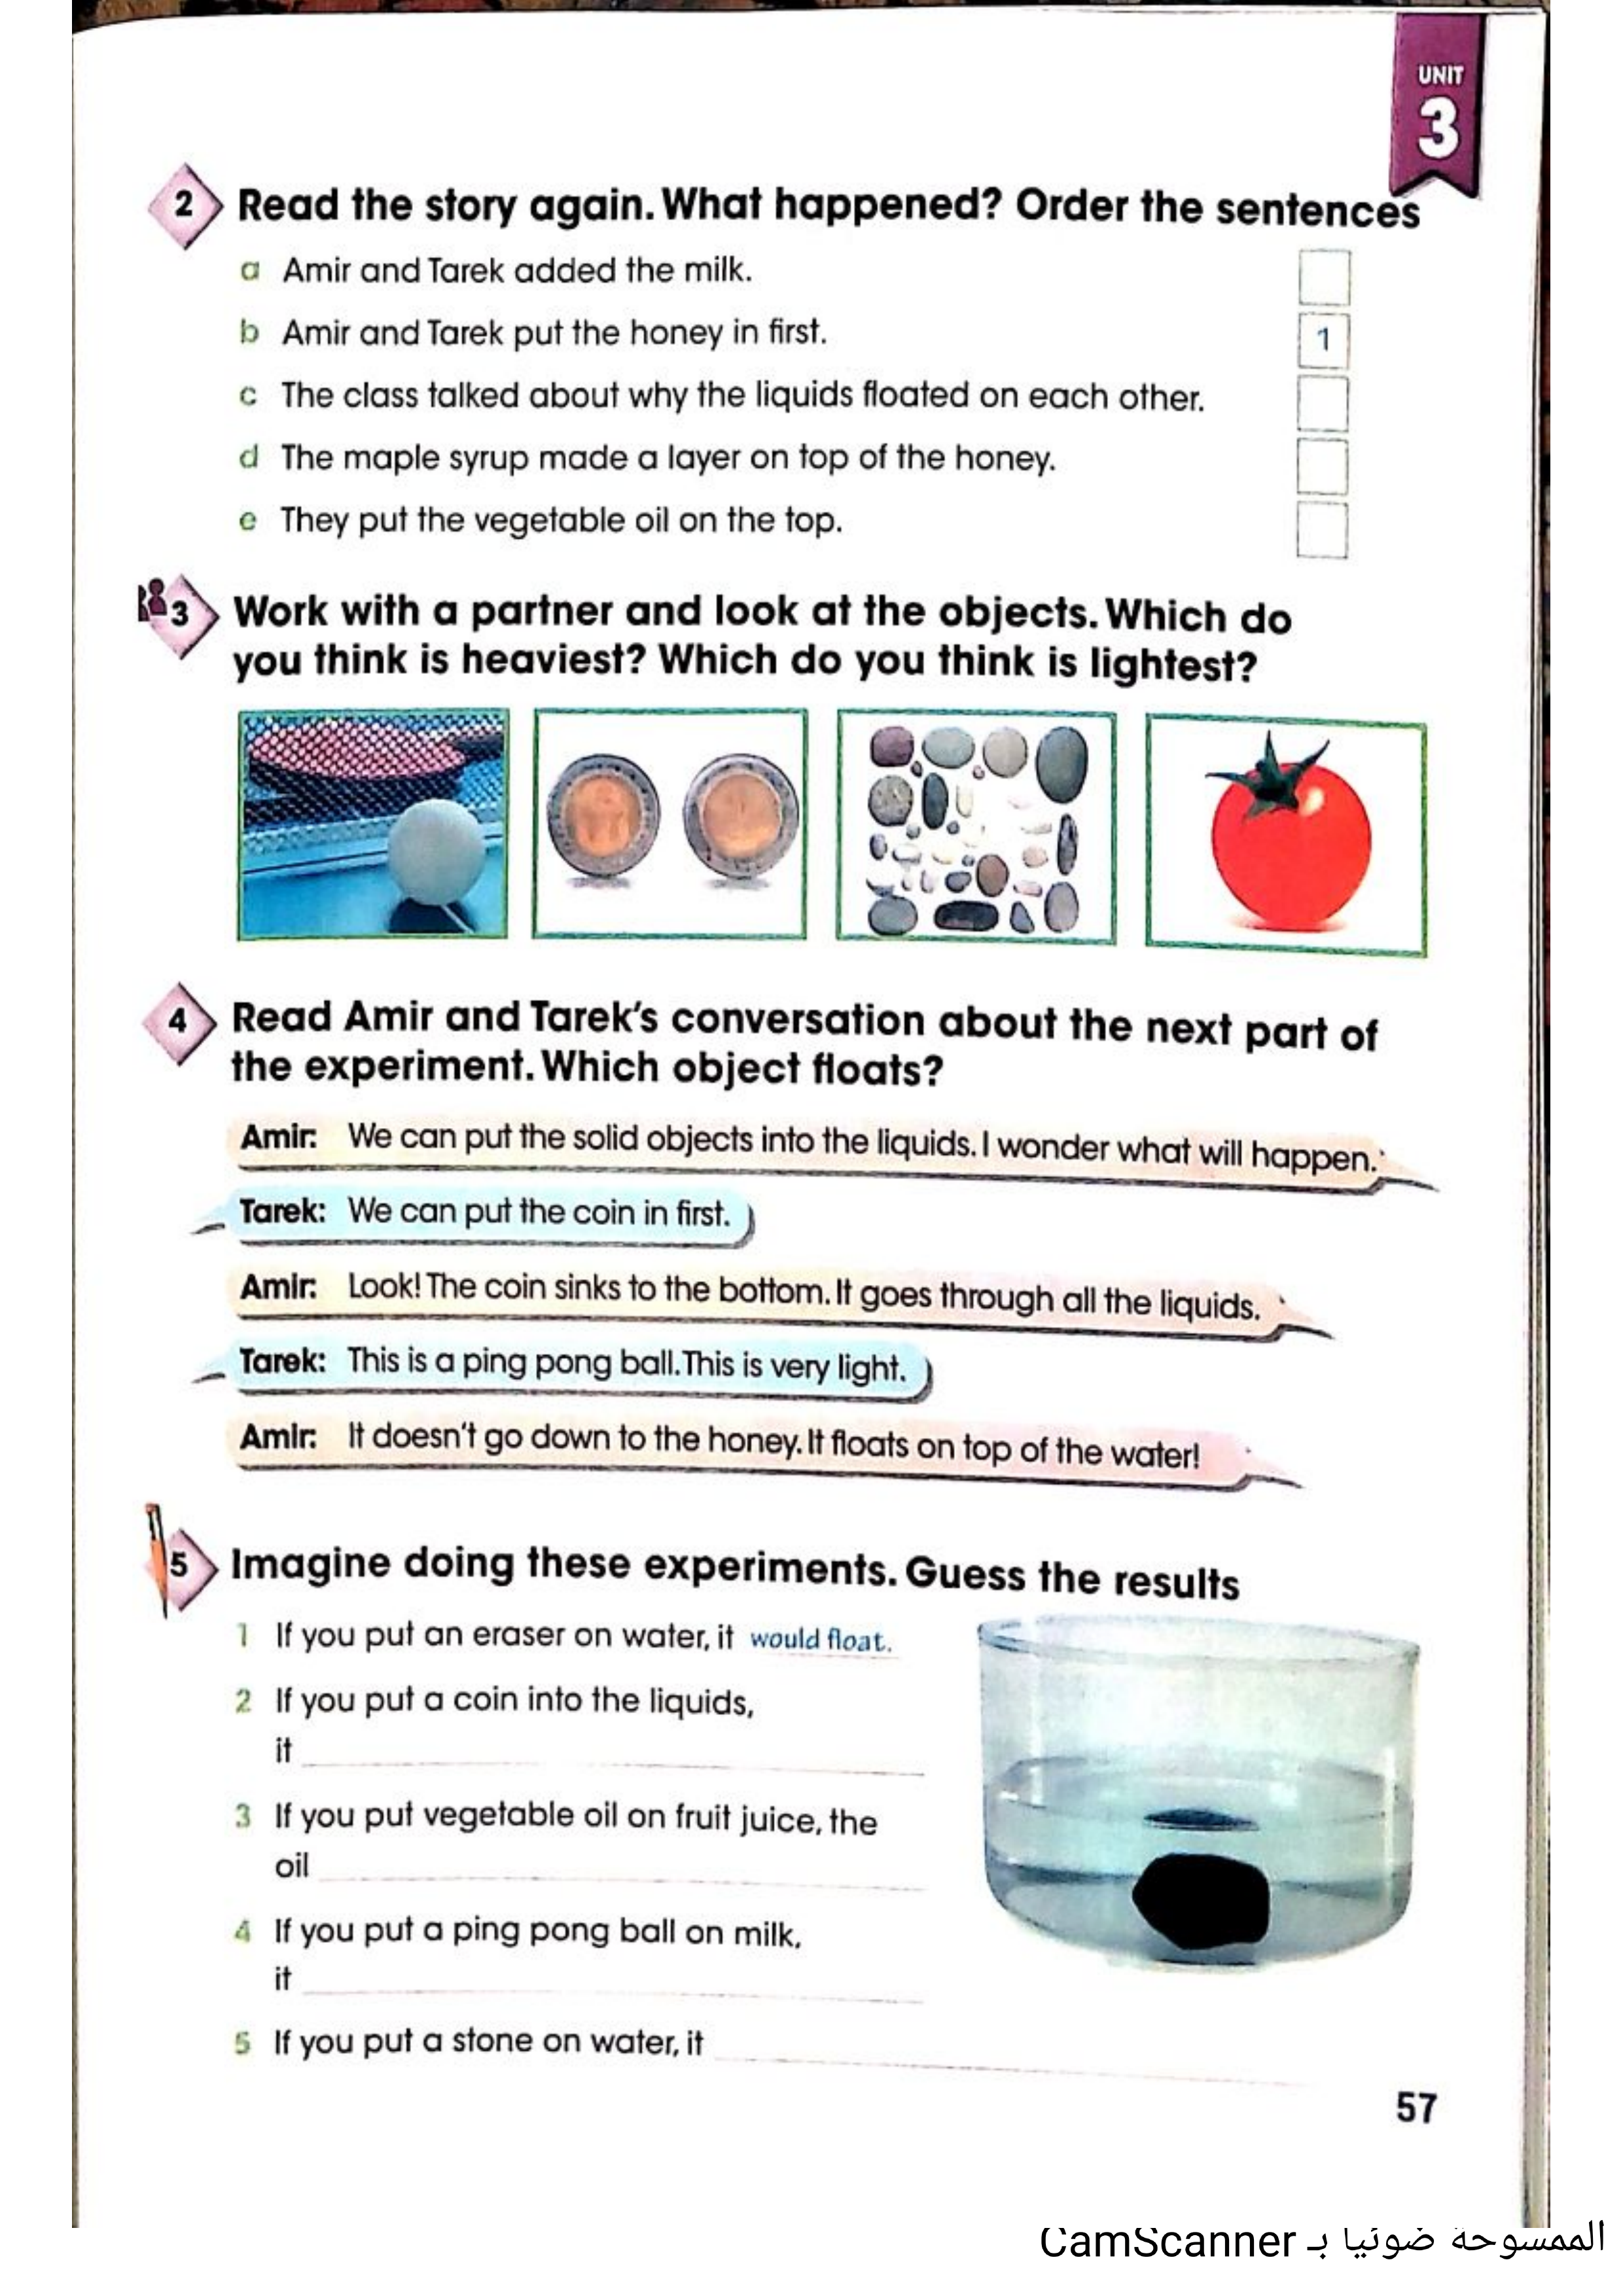 UNIT
3
2 Read the story again. What happened? Order the sentences
a Amir and Tarek added the milk.
b Amir and Tarek put the honey in first. 1
c The class talked about why the liquids floated on each other.
d The maple syrup made a layer on top of the honey.
e They put the vegetable oil on the top.
3 Work with a partner and look at the objects. Which do
you think is heaviest? Which do you think is lightest?
4 Read Amir and Tarek's conversation about the next part of
the experiment. Which object floats?
Amir: We can put the solid objects into the liquids. I wonder what will happen.
Tarek: We can put the coin in first.
Amir: Look! The coin sinks to the bottom. It goes through all the liquids.
Tarek: This is a ping pong ball. This is very light.
Amir: It doesn't go down to the honey. It floats on top of the water!
5 Imagine doing these experiments. Guess the results
1 If you put an eraser on water, it would float.
2 If you put a coin into the liquids,
it
3 If you put vegetable oil on fruit juice, the
oil
4 If you put a ping pong ball on milk,
it
5 If you put a stone on water, it
57
الممسوحة ضوئيا بـ CamScanner